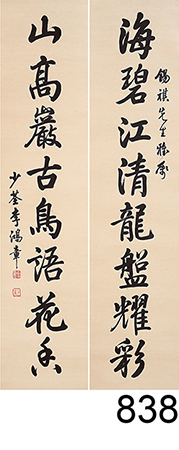 錫祺先生雅屬
海碧江清龍盤耀彩
山高巖古鳥語花香
少荃李鴻章
838